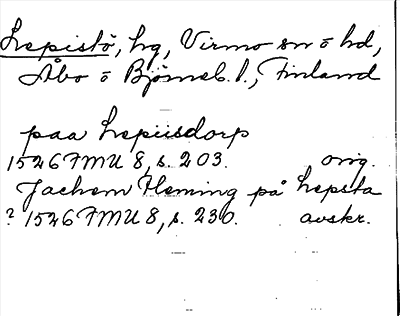 Lepistö, hg, Virmo sn o hd,
Åbo o Björneb. l., Finland
paa Lepiisdorp
1526 FMU 8, s. 203. orig.
Jachem Fleming på Lepsta
? 1526 FMU 8, s. 230. avskr.